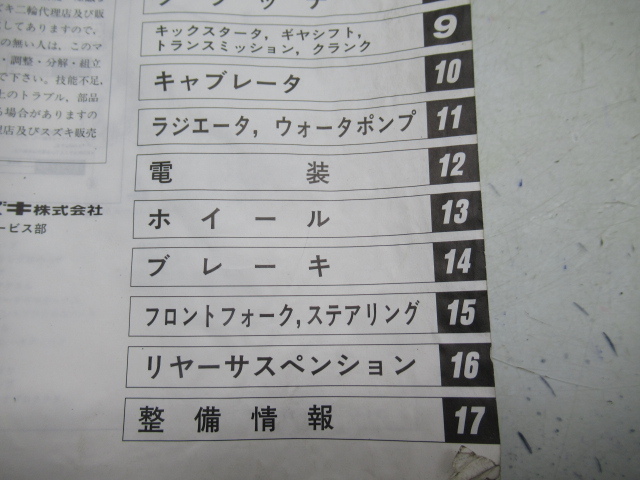 ズキ二輪代理店及び販
してありますので、
の無い人は、このマ
・調整・分解・組立
で下さい。技能不足、
上のトラブル、部品
る場合がありますの
理店及びスズキ販売
ズキ株式会社
ービス部
キックスタータ, ギヤシフト,
トランスミッション, クランク 9
キャブレータ 10
ラジエータ, ウォータポンプ 11
電装 12
ホイール 13
ブレーキ 14
フロントフォーク, ステアリング 15
リヤーサスペンション 16
整備情報 17